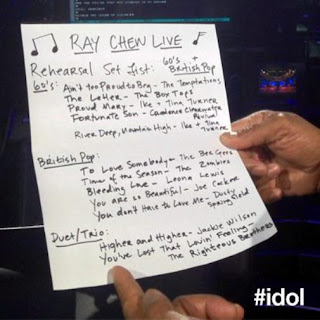 RAY CHEW LIVE
Rehearsal Set List: 60's + British Pop
60's: Ain't too Proud to Beg - The Temptations
The Letter - The Box Tops
Proud Mary - Ike + Tina Turner
Fortunate Son - Creedence Clearwater Revival
River Deep, Mountain High - Ike + Tina Turner
British Pop:
To Love Somebody - The Bee Gees
Time of the Season - The Zombies
Bleeding Love - Leona Lewis
You are so Beautiful - Joe Cocker
You don't Have to Love Me - Dusty Springfield
Duet/Trio:
Higher and Higher - Jackie Wilson
You've Lost That Lovin' Feeling -
The Righteous Brothers
#idol